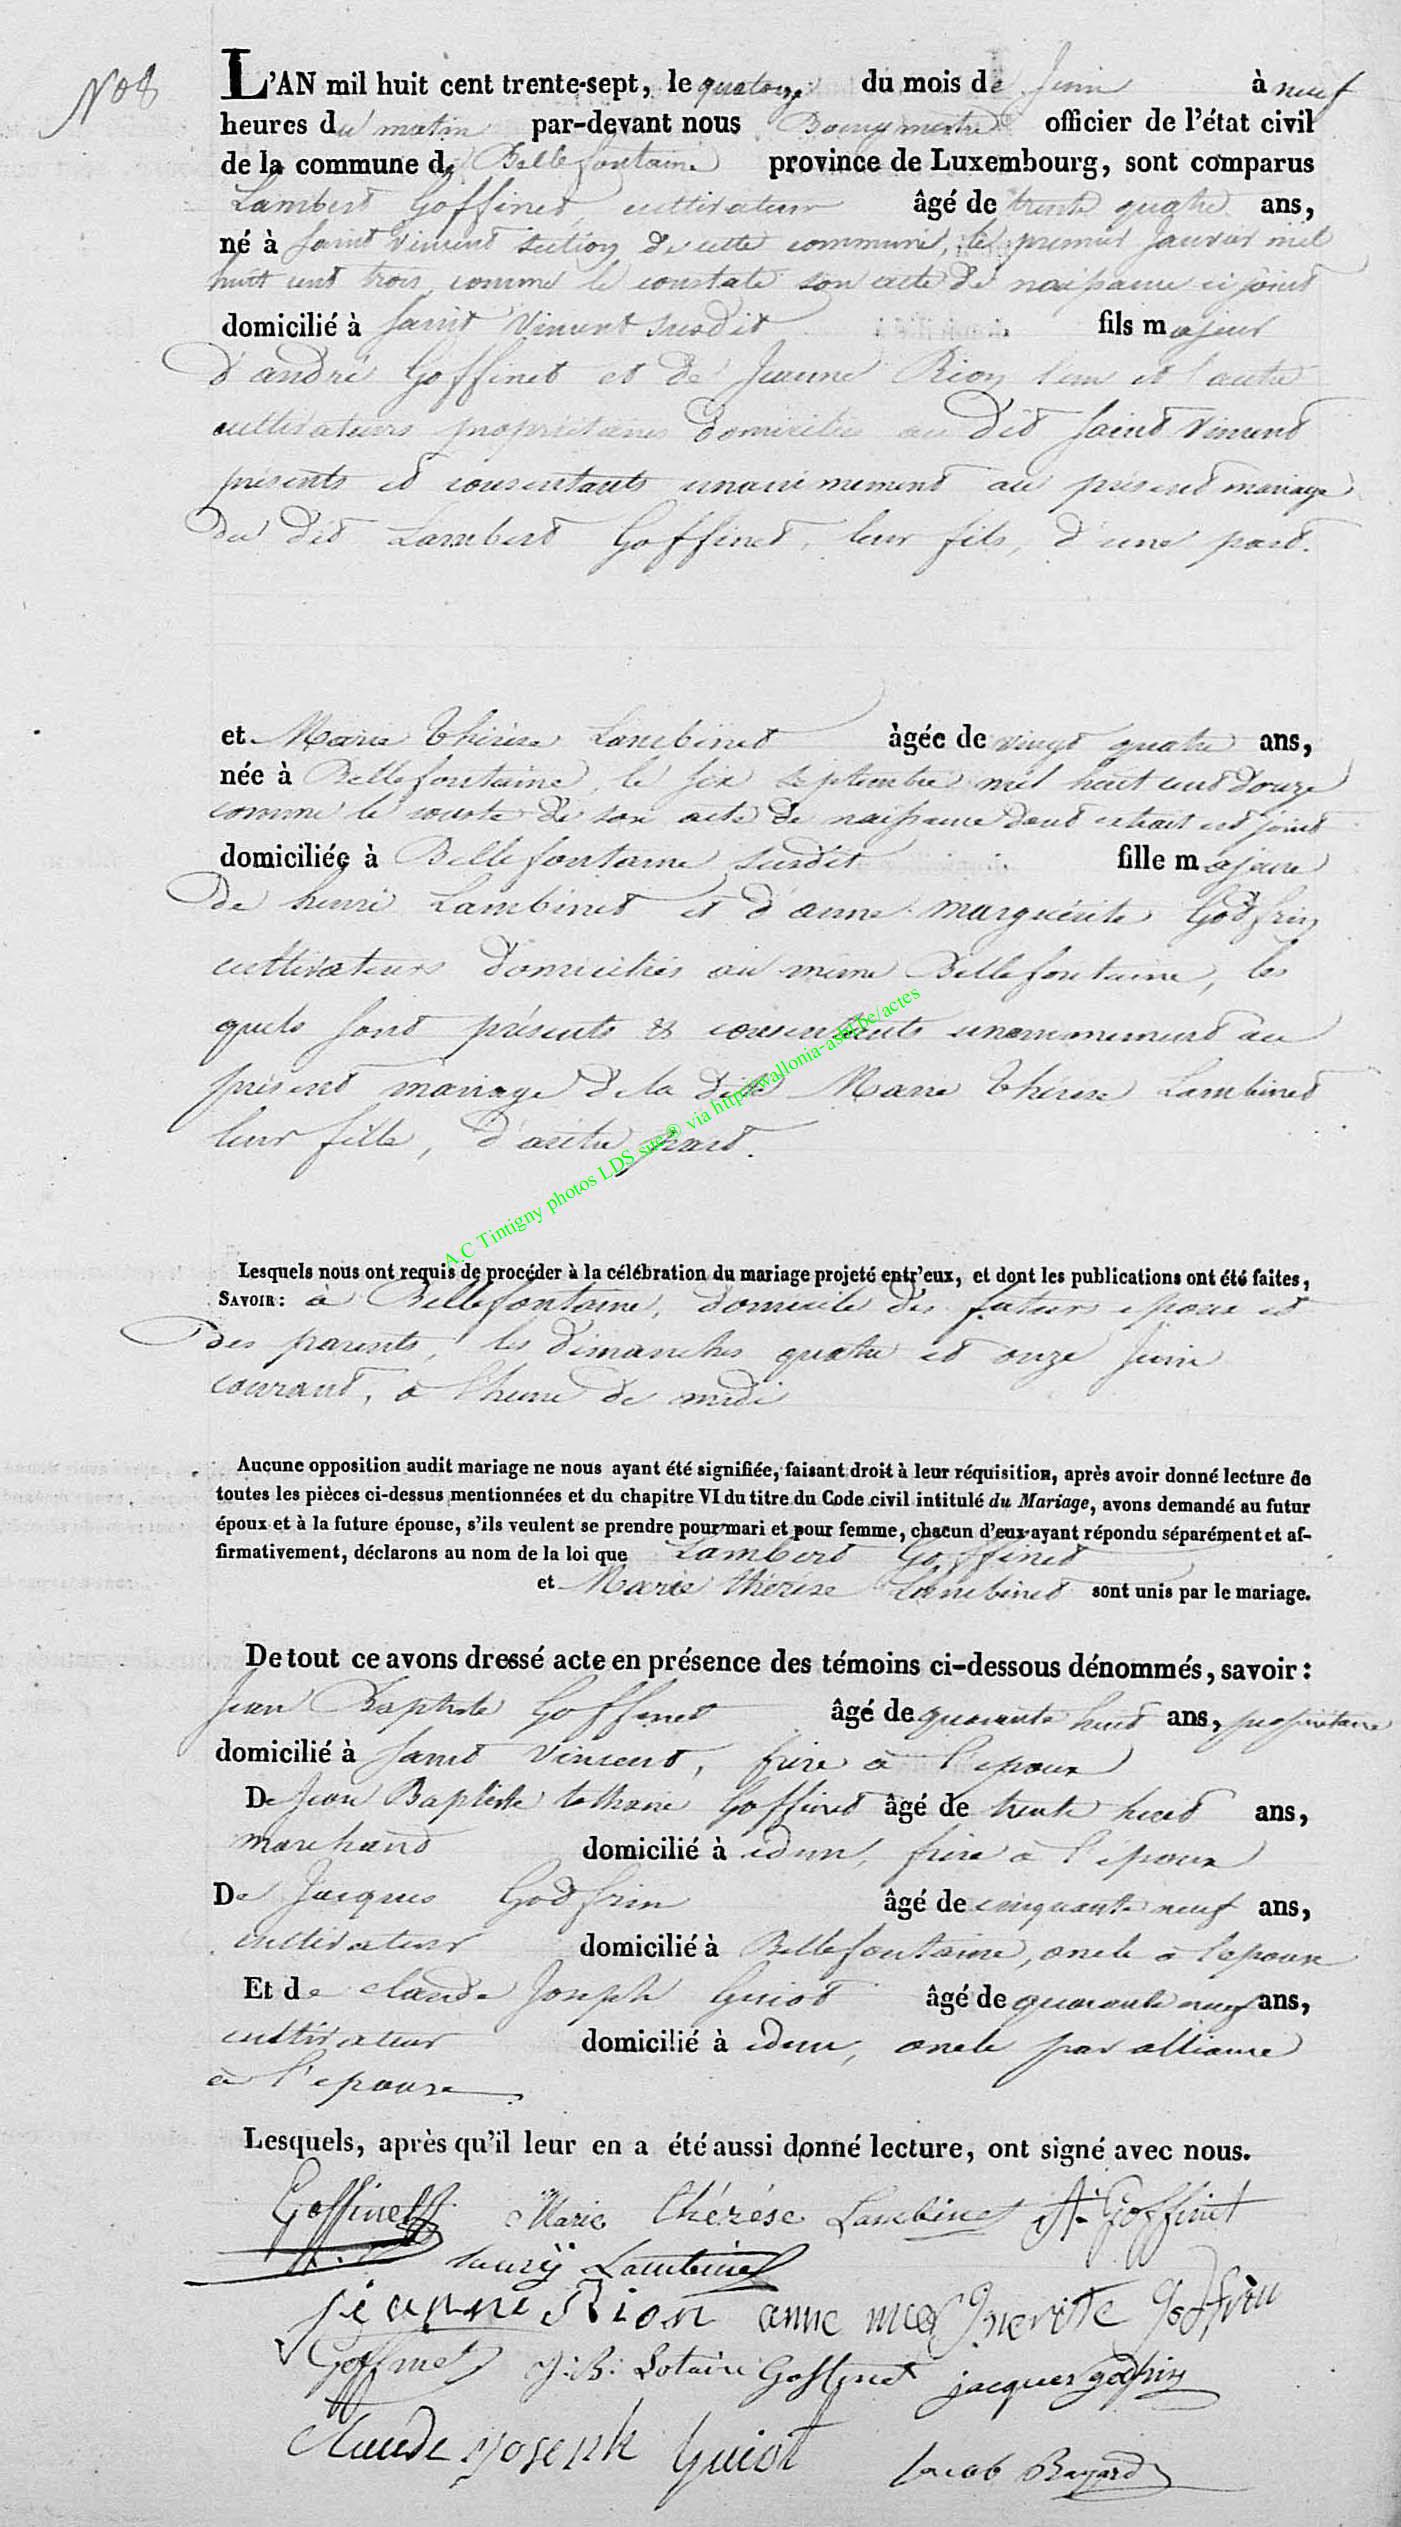 No 8
L'AN mil huit cent trente-sept, le quatorze du mois de Juin à neuf
heures du matin par-devant nous Bourgmestre officier de l'état civil
de la commune de Bellefontaine province de Luxembourg, sont comparus
Lambert Goffinet, cultivateur âgé de trente quatre ans,
né à Saint Vincent section de cette commune, le premier Janvier mil
huit cent trois, comme le constate son acte de naissance ci joint
domicilié à Saint Vincent susdit fils majeur
d'andré Goffinet et de Jeanne Rion l'un et l'autre
cultivateurs propriétaires domiciliés au dit Saint Vincent
présents et consentants unanimement au présent mariage
du dit Lambert Goffinet, leur fils, d'une part.
et Marie Thérèse Lambinet âgée de vingt quatre ans,
née à Bellefontaine, le six septembre mil huit cent douze
comme le conste de son acte de naissance dont extrait est joint
domiciliée à Bellefontaine susdit fille majeure
de henri Lambinet et d'anne marguérite Godfrin
cultivateurs domiciliés au même Bellefontaine, les
quels sont présents & consentants unanimement au
présent mariage de la dite Marie Thérèse Lambinet
leur fille, d'autre part.
A.C Tintigny photos LDS site® via http://wallonia-asbl.be/actes
Lesquels nous ont requis de procéder à la célébration du mariage projeté entr'eux, et dont les publications ont été faites,
SAVOIR: à Bellefontaine, domicile des futurs epoux et
des parents, les dimanches quatre et onze Juin
courant, à l'heure de midi
Aucune opposition audit mariage ne nous ayant été signifiée, faisant droit à leur réquisition, après avoir donné lecture de
toutes les pièces ci-dessus mentionnées et du chapitre VI du titre du Code civil intitulé du Mariage, avons demandé au futur
époux et à la future épouse, s'ils veulent se prendre pour mari et pour femme, chacun d'eux ayant répondu séparément et af-
firmativement, déclarons au nom de la loi que Lambert Goffinet
et Marie thérèse Lambinet sont unis par le mariage.
De tout ce avons dressé acte en présence des témoins ci-dessous dénommés, savoir:
Jean Baptiste Goffinet âgé de quarante huit ans, propriétaire
domicilié à Saint Vincent, frère à l'epoux
De Jean Baptiste Goffinet âgé de trente huit ans,
marchand domicilié à idem, frère à l'époux
De Jacques Godfrin âgé de cinquante neuf ans,
cultivateur domicilié à Bellefontaine, oncle à l'epouse
Et de claude Joseph Guiot âgé de quarante neuf ans,
cultivateur domicilié à idem, oncle par alliance
à l'epouse.
Lesquels, après qu'il leur en a été aussi donné lecture, ont signé avec nous.
Goffinet Marie thérése Lambinet A. Goffinet
henrÿ Lambinet
jeanne Rion anne marguerite Godfrin
Goffinet J: B: Lotaire Goffinet jacques godfrin
Claude joseph Guiot Jacob Bayard